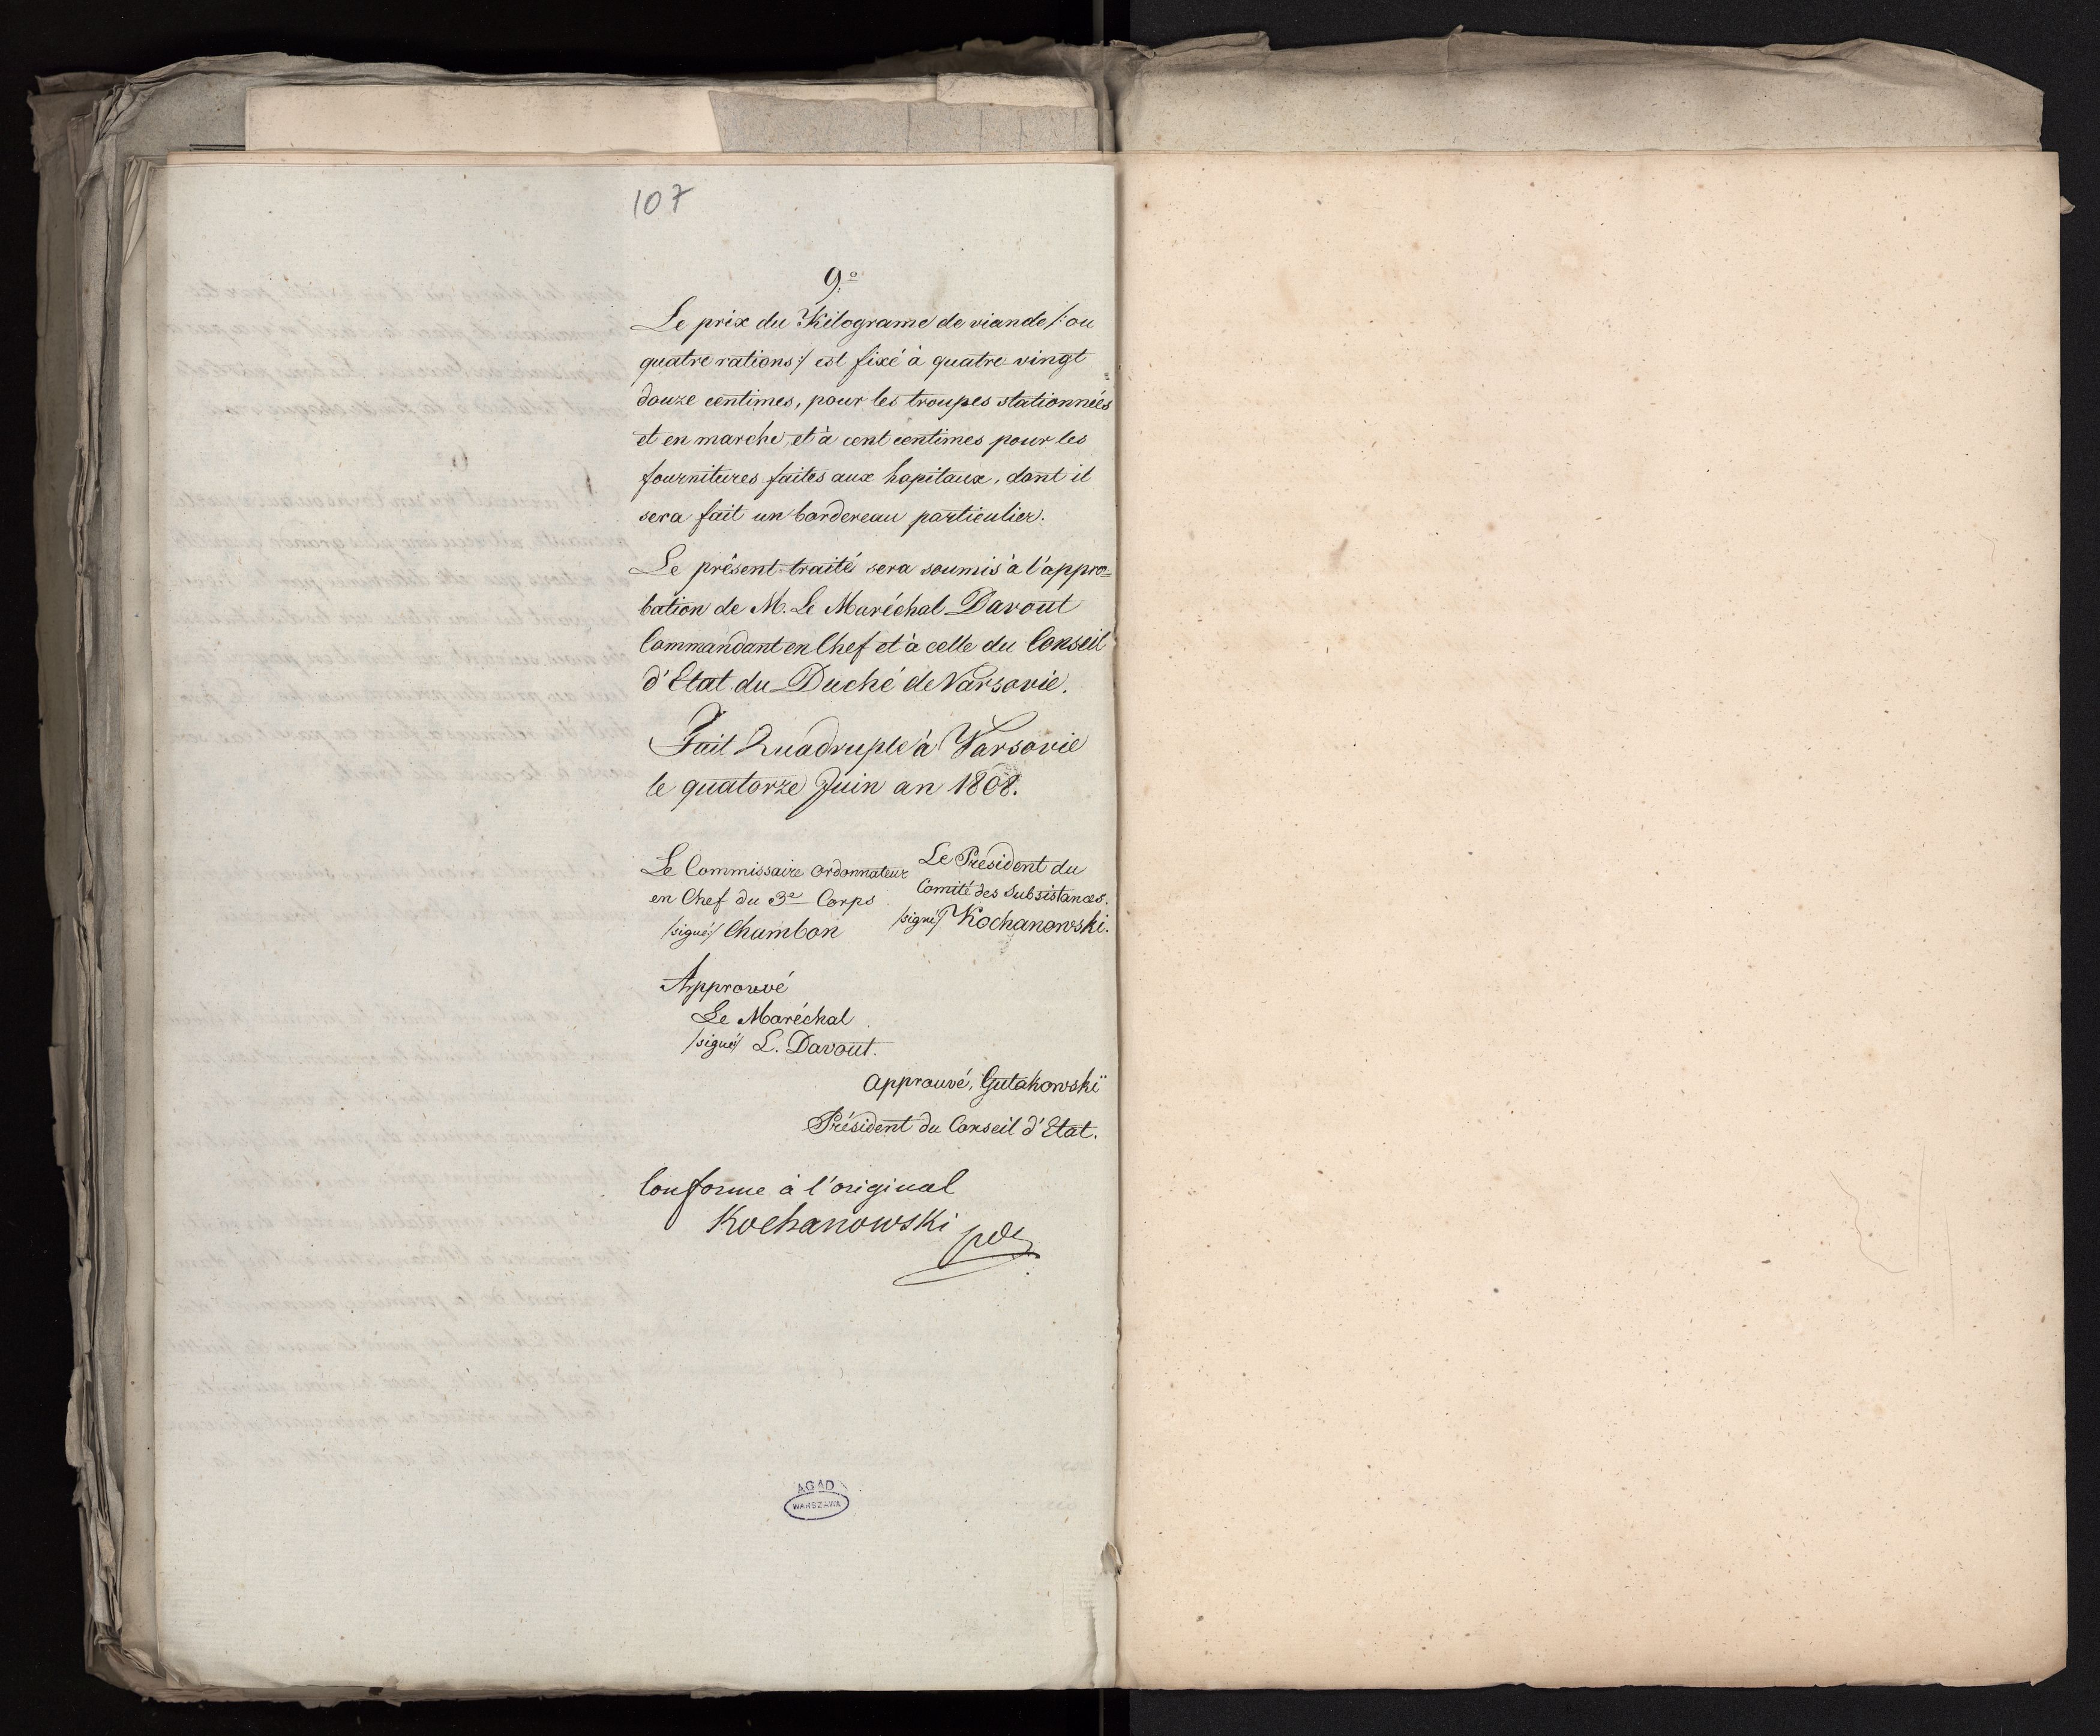 107
9.º
Le prix du Kilograme de viande /: ou
quatre rations :/ est fixé à quatre vingt
douze centimes, pour les troupes stationnées
et en marche, et à cent centimes pour les
fournitures faites aux hopitaux, dont il
sera fait un bordereau particulier.
Le présent traité sera soumis à l'appro=
bation de M. Le Maréchal Davout
Commandant en Chef et à celle du Conseil
d'Etat du Duché de Varsovie.
Fait Quadruple à Varsovie
le quatorze Juin an 1808.
Le Commissaire Ordonnateur
en Chef du 3e Corps
/signé:/ Chambon
Le Président du
Comité des Subsistances.
/signé/ Kochanowski.
Approuvé
Le Maréchal
/signé/ L. Davout.
Approuvé, Gutakowski
Président du Conseil d'Etat.
Conforme à l'original
Kochanowski
AGAD
WARSZAWA